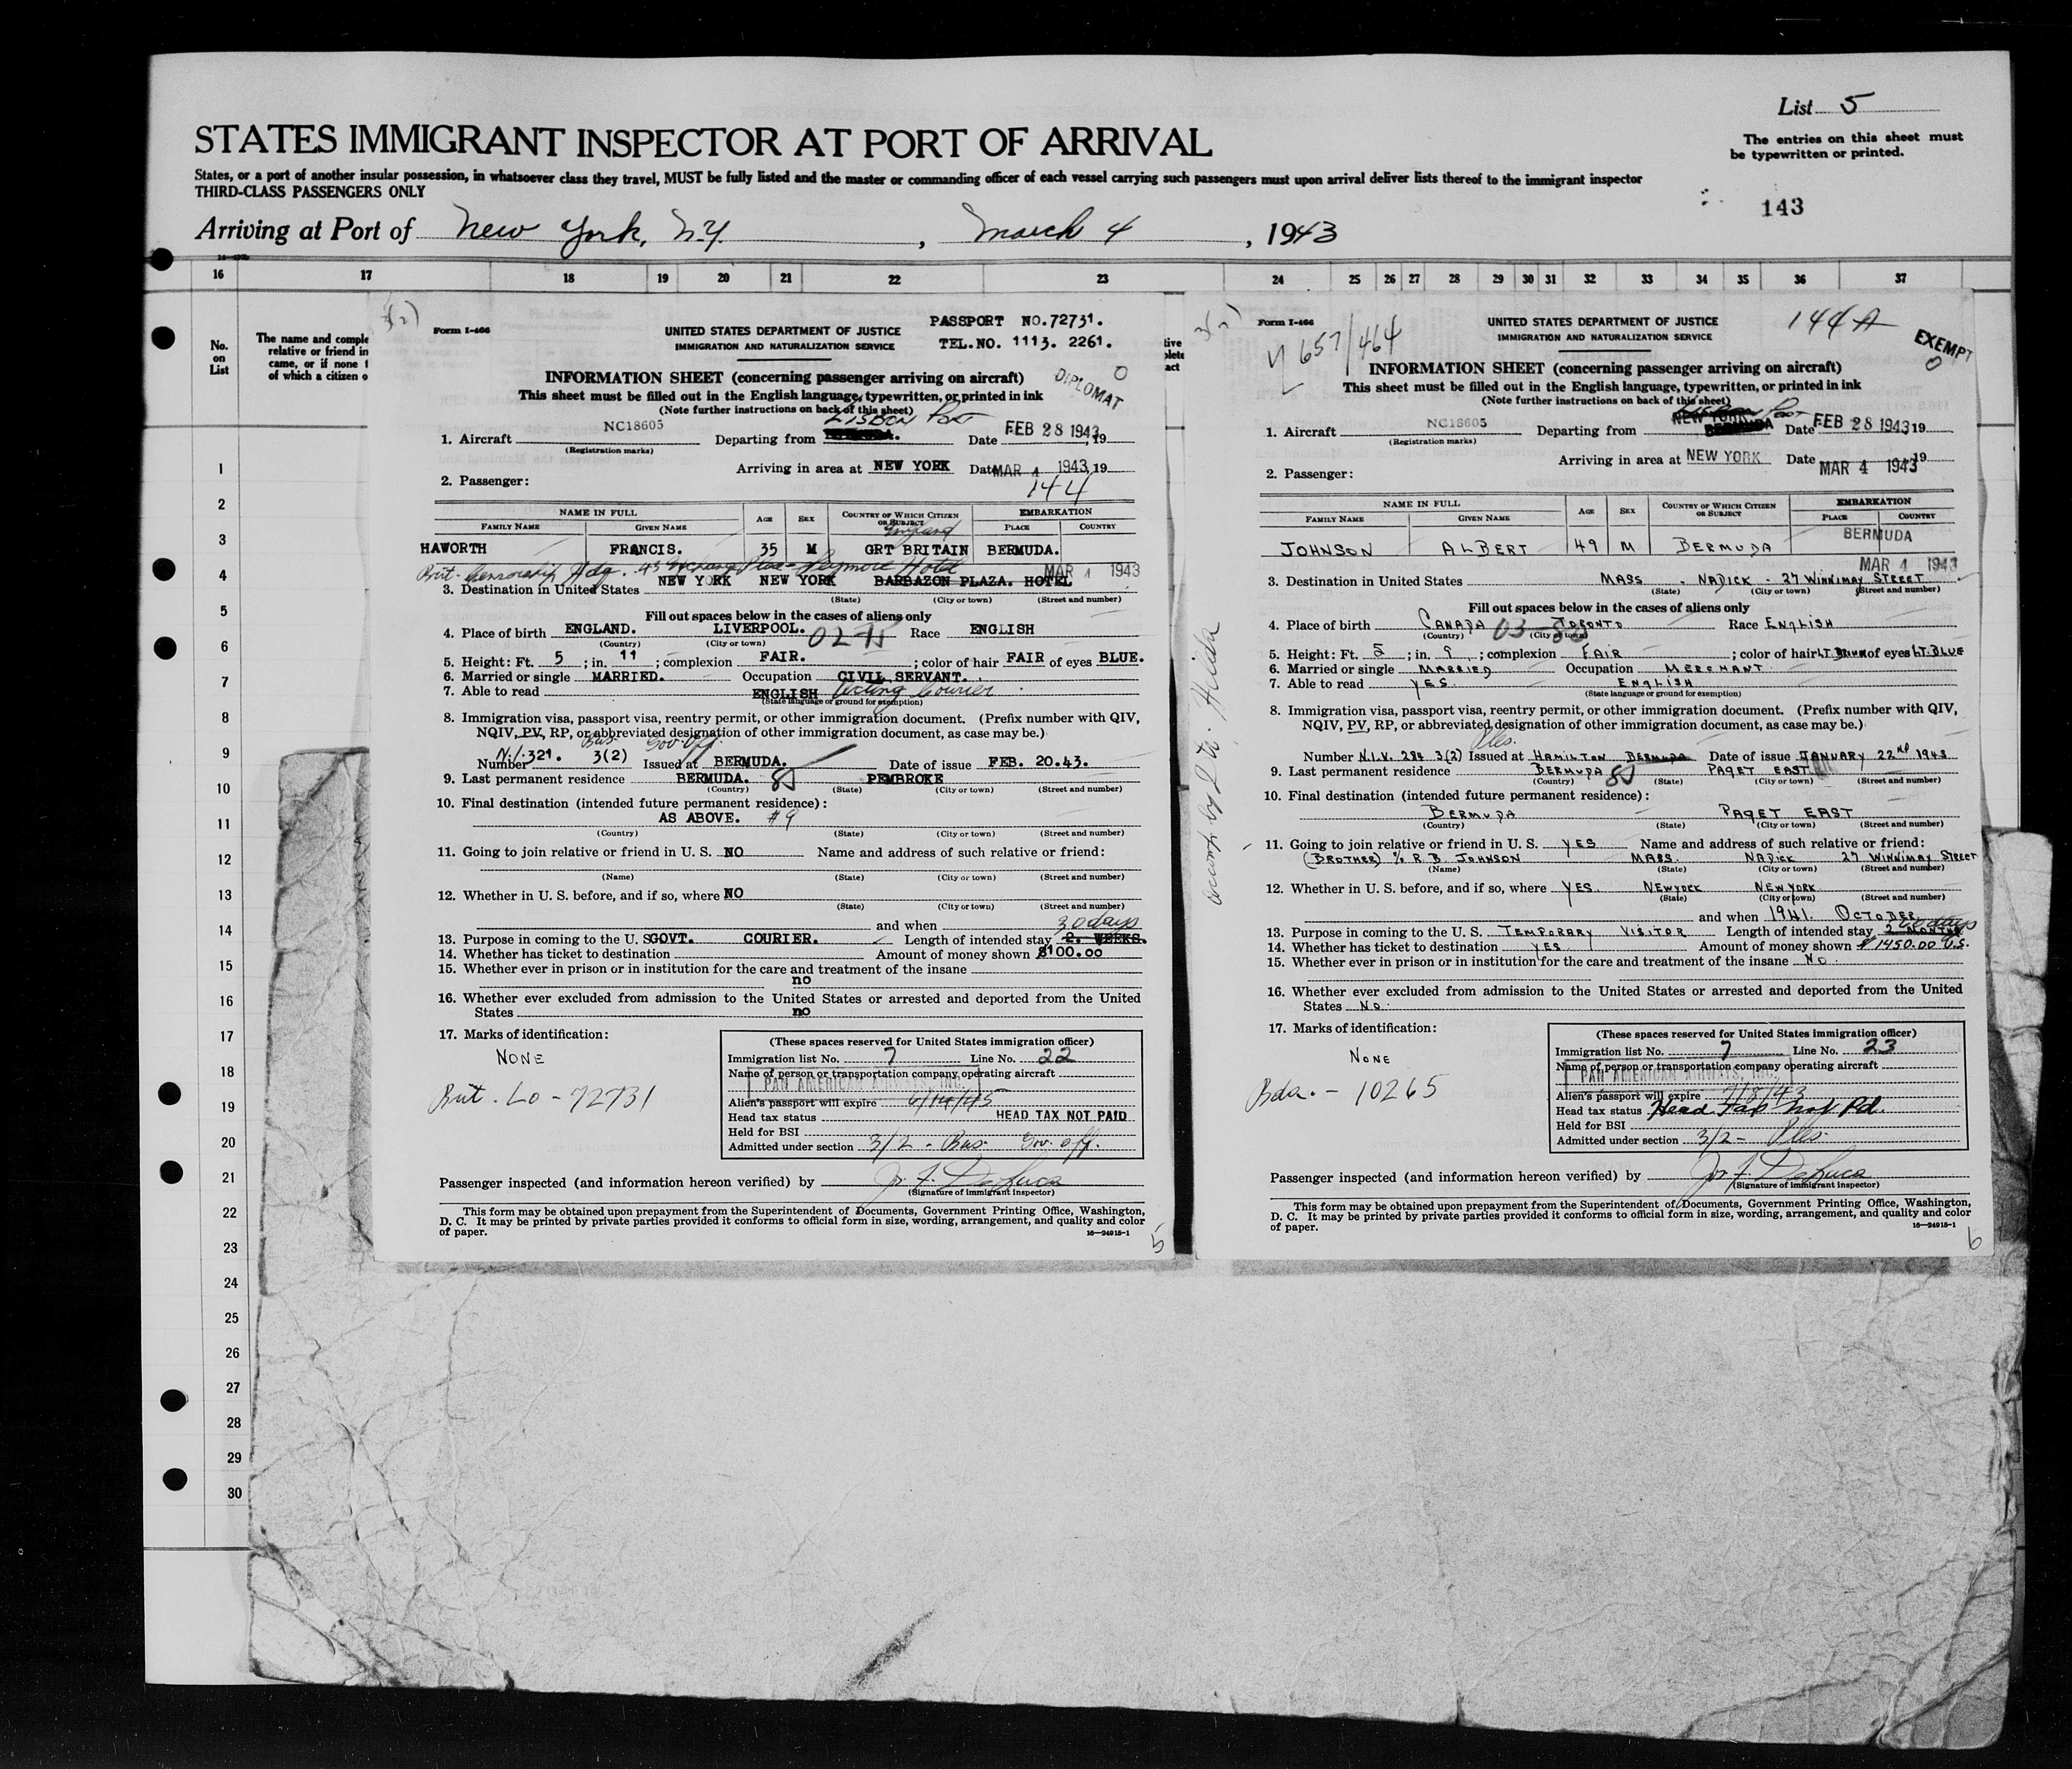 List 5
STATES IMMIGRANT INSPECTOR AT PORT OF ARRIVAL
The entries on this sheet must
be typewritten or printed.
States, or a port of another insular possession, in whatsoever class they travel, MUST be fully listed and the master or commanding officer of each vessel carrying such passengers must upon arrival deliver lists thereof to the immigrant inspector
THIRD-CLASS PASSENGERS ONLY
143
Arriving at Port of New York, N.Y. , March 4 , 1943
16 17 18 19 20 21 22 23 24 25 26 27 28 29 30 31 32 33 34 35 36 37
No.
on
List
The name and comple
relative or friend in
came, or if none t
of which a citizen o
1
2
3
4
5
6
7
8
9
10
11
12
13
14
15
16
17
18
19
20
21
22
23
24
25
26
27
28
29
30
3(2)
Form I-466
UNITED STATES DEPARTMENT OF JUSTICE
IMMIGRATION AND NATURALIZATION SERVICE
PASSPORT NO.72731.
TEL.NO. 1113. 2261.
INFORMATION SHEET (concerning passenger arriving on aircraft)
This sheet must be filled out in the English language, typewritten, or printed in ink
(Note further instructions on back of this sheet)
DIPLOMAT
0
Lisbon Port
1. Aircraft NC18605 Departing from BERMUDA. Date FEB 28 1943, 19
(Registration marks)
Arriving in area at NEW YORK Date MAR 4 1943, 19
2. Passenger:
144
NAME IN FULL AGE SEX COUNTRY OF WHICH CITIZEN OR SUBJECT EMBARKATION
FAMILY NAME GIVEN NAME PLACE COUNTRY
England
HAWORTH FRANCIS. 35 M GRT BRITAIN BERMUDA.
MAR 4 1943
Brit. Censorship Hdq. 45 Exchange Place - Seymore Hotel
3. Destination in United States NEW YORK NEW YORK BARBAZON PLAZA. HOTEL
(State) (City or town) (Street and number)
Fill out spaces below in the cases of aliens only
4. Place of birth ENGLAND. LIVERPOOL. Race ENGLISH
(Country) (City or town)
5. Height: Ft. 5 ; in. 11 ; complexion FAIR. ; color of hair FAIR of eyes BLUE.
6. Married or single MARRIED. Occupation CIVIL SERVANT.
7. Able to read ENGLISH Acting Courier
(State language or ground for exemption)
8. Immigration visa, passport visa, reentry permit, or other immigration document. (Prefix number with QIV,
NQIV, PV, RP, or abbreviated designation of other immigration document, as case may be.)
Bus. Gov. Off.
Number N.I.321. 3(2) Issued at BERMUDA. Date of issue FEB. 20.43.
9. Last permanent residence BERMUDA. 85 PEMBROKE
(Country) (State) (City or town) (Street and number)
10. Final destination (intended future permanent residence):
AS ABOVE. #9
(Country) (State) (City or town) (Street and number)
11. Going to join relative or friend in U. S. NO Name and address of such relative or friend:
(Name) (State) (City or town) (Street and number)
12. Whether in U. S. before, and if so, where NO
(State) (City or town) (Street and number)
and when
30 days
13. Purpose in coming to the U. S. GOVT. COURIER. Length of intended stay 2. WEEKS.
14. Whether has ticket to destination Amount of money shown $100.00
15. Whether ever in prison or in institution for the care and treatment of the insane
no
16. Whether ever excluded from admission to the United States or arrested and deported from the United
States no
17. Marks of identification:
NONE
Brit. Lo - 72731
(These spaces reserved for United States immigration officer)
Immigration list No. 7 Line No. 22
Name of person or transportation company operating aircraft
PAN AMERICAN AIRWAYS, INC.
Alien's passport will expire 6/14/45
Head tax status HEAD TAX NOT PAID
Held for BSI
Admitted under section 3/2 - Bus. Gov. off.
Passenger inspected (and information hereon verified) by Jr. F. DeLuca
(Signature of immigrant inspector)
This form may be obtained upon prepayment from the Superintendent of Documents, Government Printing Office, Washington,
D. C. It may be printed by private parties provided it conforms to official form in size, wording, arrangement, and quality and color
of paper.
16—24915-1
5
tive
plete
act
3(2)
Form I-466
657/464
UNITED STATES DEPARTMENT OF JUSTICE
IMMIGRATION AND NATURALIZATION SERVICE
144 A
EXEMPT
0
INFORMATION SHEET (concerning passenger arriving on aircraft)
This sheet must be filled out in the English language, typewritten, or printed in ink
(Note further instructions on back of this sheet)
Lisbon Port
1. Aircraft NC18605 Departing from NEW YORK BERMUDA Date FEB 28 1943, 19
(Registration marks)
Arriving in area at NEW YORK Date MAR 4 1943 19
2. Passenger:
NAME IN FULL AGE SEX COUNTRY OF WHICH CITIZEN OR SUBJECT EMBARKATION
FAMILY NAME GIVEN NAME PLACE COUNTRY
BERMUDA
JOHNSON ALBERT 49 M BERMUDA
MAR 4 1943
3. Destination in United States MASS. NADICK. 27 WINNIMAY STREET
(State) (City or town) (Street and number)
Fill out spaces below in the cases of aliens only
4. Place of birth CANADA TORONTO Race ENGLISH
(Country) (City or town)
5. Height: Ft. 5 ; in. 9 ; complexion FAIR ; color of hair LT. BROWN of eyes LT. BLUE
6. Married or single MARRIED Occupation MERCHANT.
7. Able to read YES. ENGLISH
(State language or ground for exemption)
8. Immigration visa, passport visa, reentry permit, or other immigration document. (Prefix number with QIV,
NQIV, PV, RP, or abbreviated designation of other immigration document, as case may be.)
Ples.
Number N.I.V. 284 3(2) Issued at HAMILTON BERMUDA Date of issue JANUARY 22ND 1943
9. Last permanent residence BERMUDA 85 PAGET EAST
(Country) (State) (City or town) (Street and number)
10. Final destination (intended future permanent residence):
BERMUDA PAGET EAST
(Country) (State) (City or town) (Street and number)
11. Going to join relative or friend in U. S. YES Name and address of such relative or friend:
(BROTHER) % R. B. JOHNSON MASS. NADICK 27 WINNIMAY STREET
(Name) (State) (City or town) (Street and number)
12. Whether in U. S. before, and if so, where YES. NEWYORK NEW YORK.
(State) (City or town) (Street and number)
and when 1941. OCTOBER
60 days
13. Purpose in coming to the U. S. TEMPORARY VISITOR Length of intended stay 2 MONTHS
14. Whether has ticket to destination YES Amount of money shown $1450.00 U.S.
15. Whether ever in prison or in institution for the care and treatment of the insane NO.
16. Whether ever excluded from admission to the United States or arrested and deported from the United
States NO.
17. Marks of identification:
NONE
Bda. - 10265
(These spaces reserved for United States immigration officer)
Immigration list No. 7 Line No. 23
Name of person or transportation company operating aircraft
PAN AMERICAN AIRWAYS, INC.
Alien's passport will expire 7/8/43
Head tax status Head Tax not Pd.
Held for BSI
Admitted under section 3/2 - Ples.
Passenger inspected (and information hereon verified) by Jr. F. DeLuca
(Signature of immigrant inspector)
This form may be obtained upon prepayment from the Superintendent of Documents, Government Printing Office, Washington,
D. C. It may be printed by private parties provided it conforms to official form in size, wording, arrangement, and quality and color
of paper.
16—24915-1
6